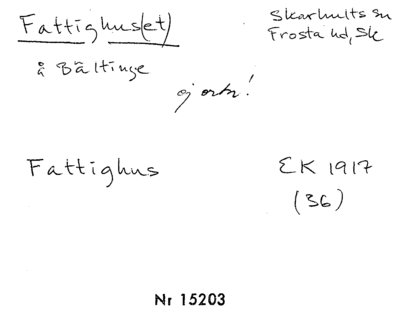 Fattighus(et)
Skarhults sn
Frosta hd, Sk
å Bältinge
ej ortn!
Fattighus
EK 1917
(36)
Nr 15203